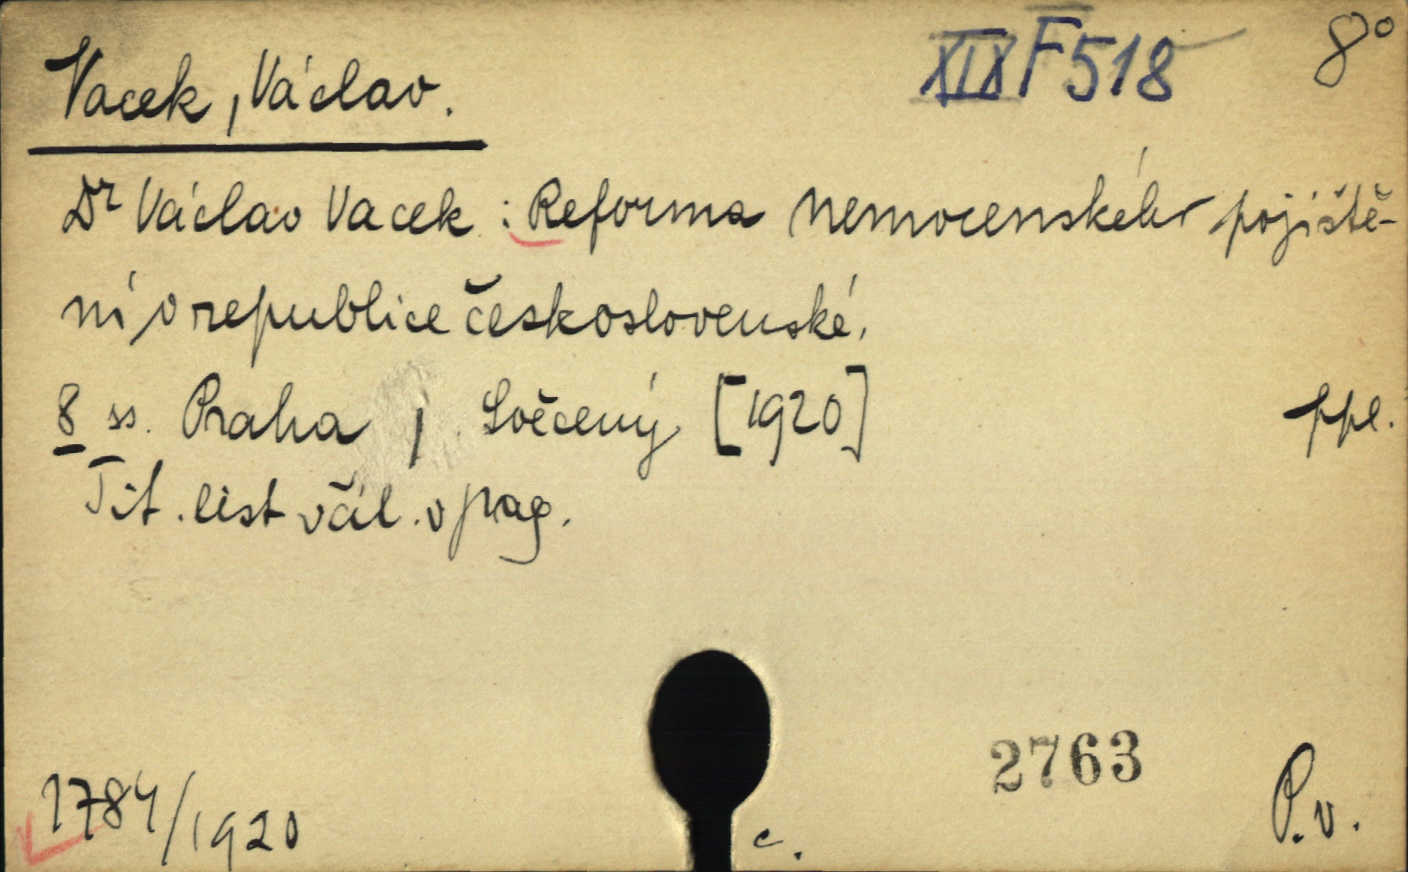 XIX F 518
8°
Vacek, Václav.
Dr Václav Vacek: Reforma nemocenského pojiště-
ní v republice československé.
8 ss. Praha, Svěcený [1920] ppl.
Tit. list včít. v pag.
2763
1784/1920
c.
P.v.